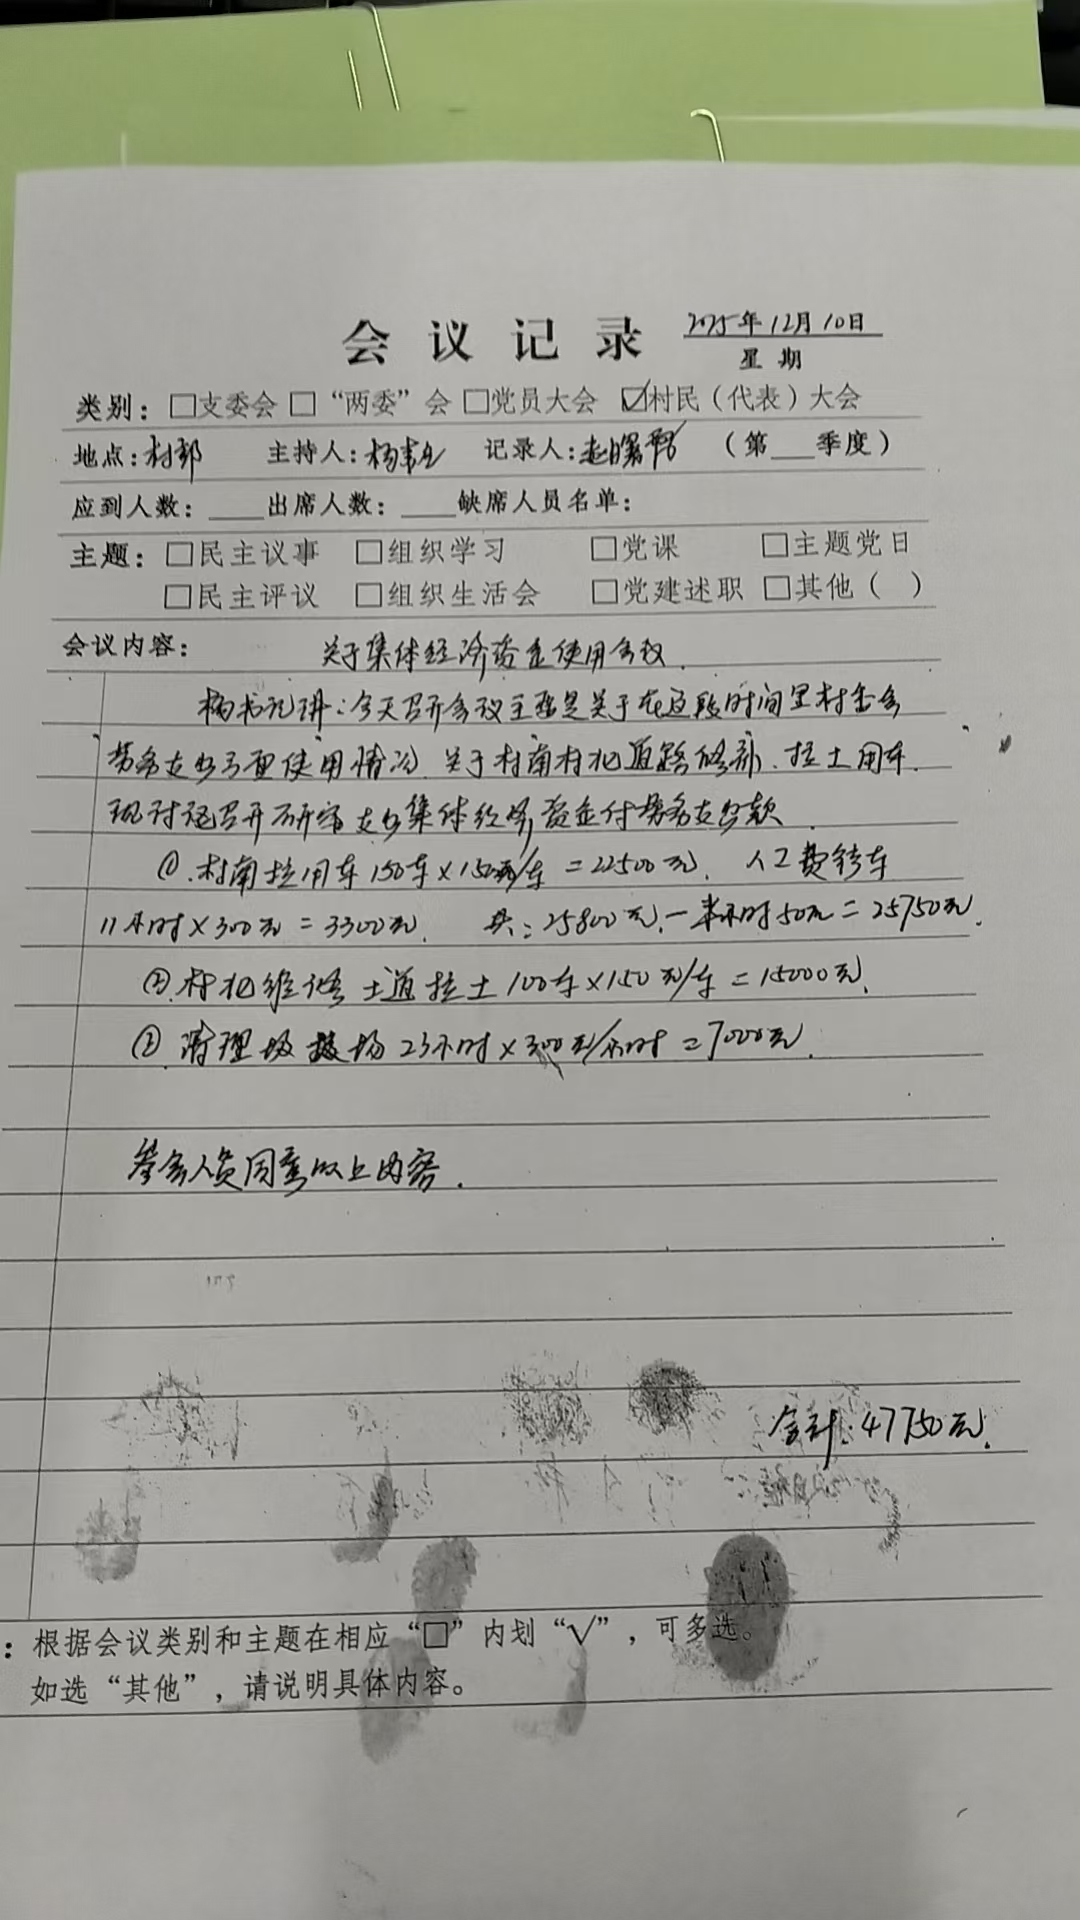 会议记录 2025年12月10日
星期
类别：□支委会 □“两委”会 □党员大会 ☑村民（代表）大会
地点：村部 主持人：杨 记录人：赵 （第___季度）
应到人数：____出席人数：____缺席人员名单：
主题：□民主议事 □组织学习 □党课 □主题党日
□民主评议 □组织生活会 □党建述职 □其他（ ）
会议内容： 关于集体经济资金使用会议.
杨书记讲：今天召开会议主要是关于在这段时间里村委会
劳务支出方面使用情况 关于村南村北道路修补、拉土用车.
现讨论召开研究支出集体经济资金付劳务支出款.
①.村南拉用车150车×150元/车=22500元. 人工费 车
11小时×300元=3300元. 共:25800元.一半小时50元=25750元.
②.村北维修土道拉土100车×150元/车=15000元.
② 清理垃圾场23小时×300元/小时=7000元.
参会人员同意以上内容.
合计:47750元.
：根据会议类别和主题在相应“□”内划“√”，可多选。
如选“其他”，请说明具体内容。